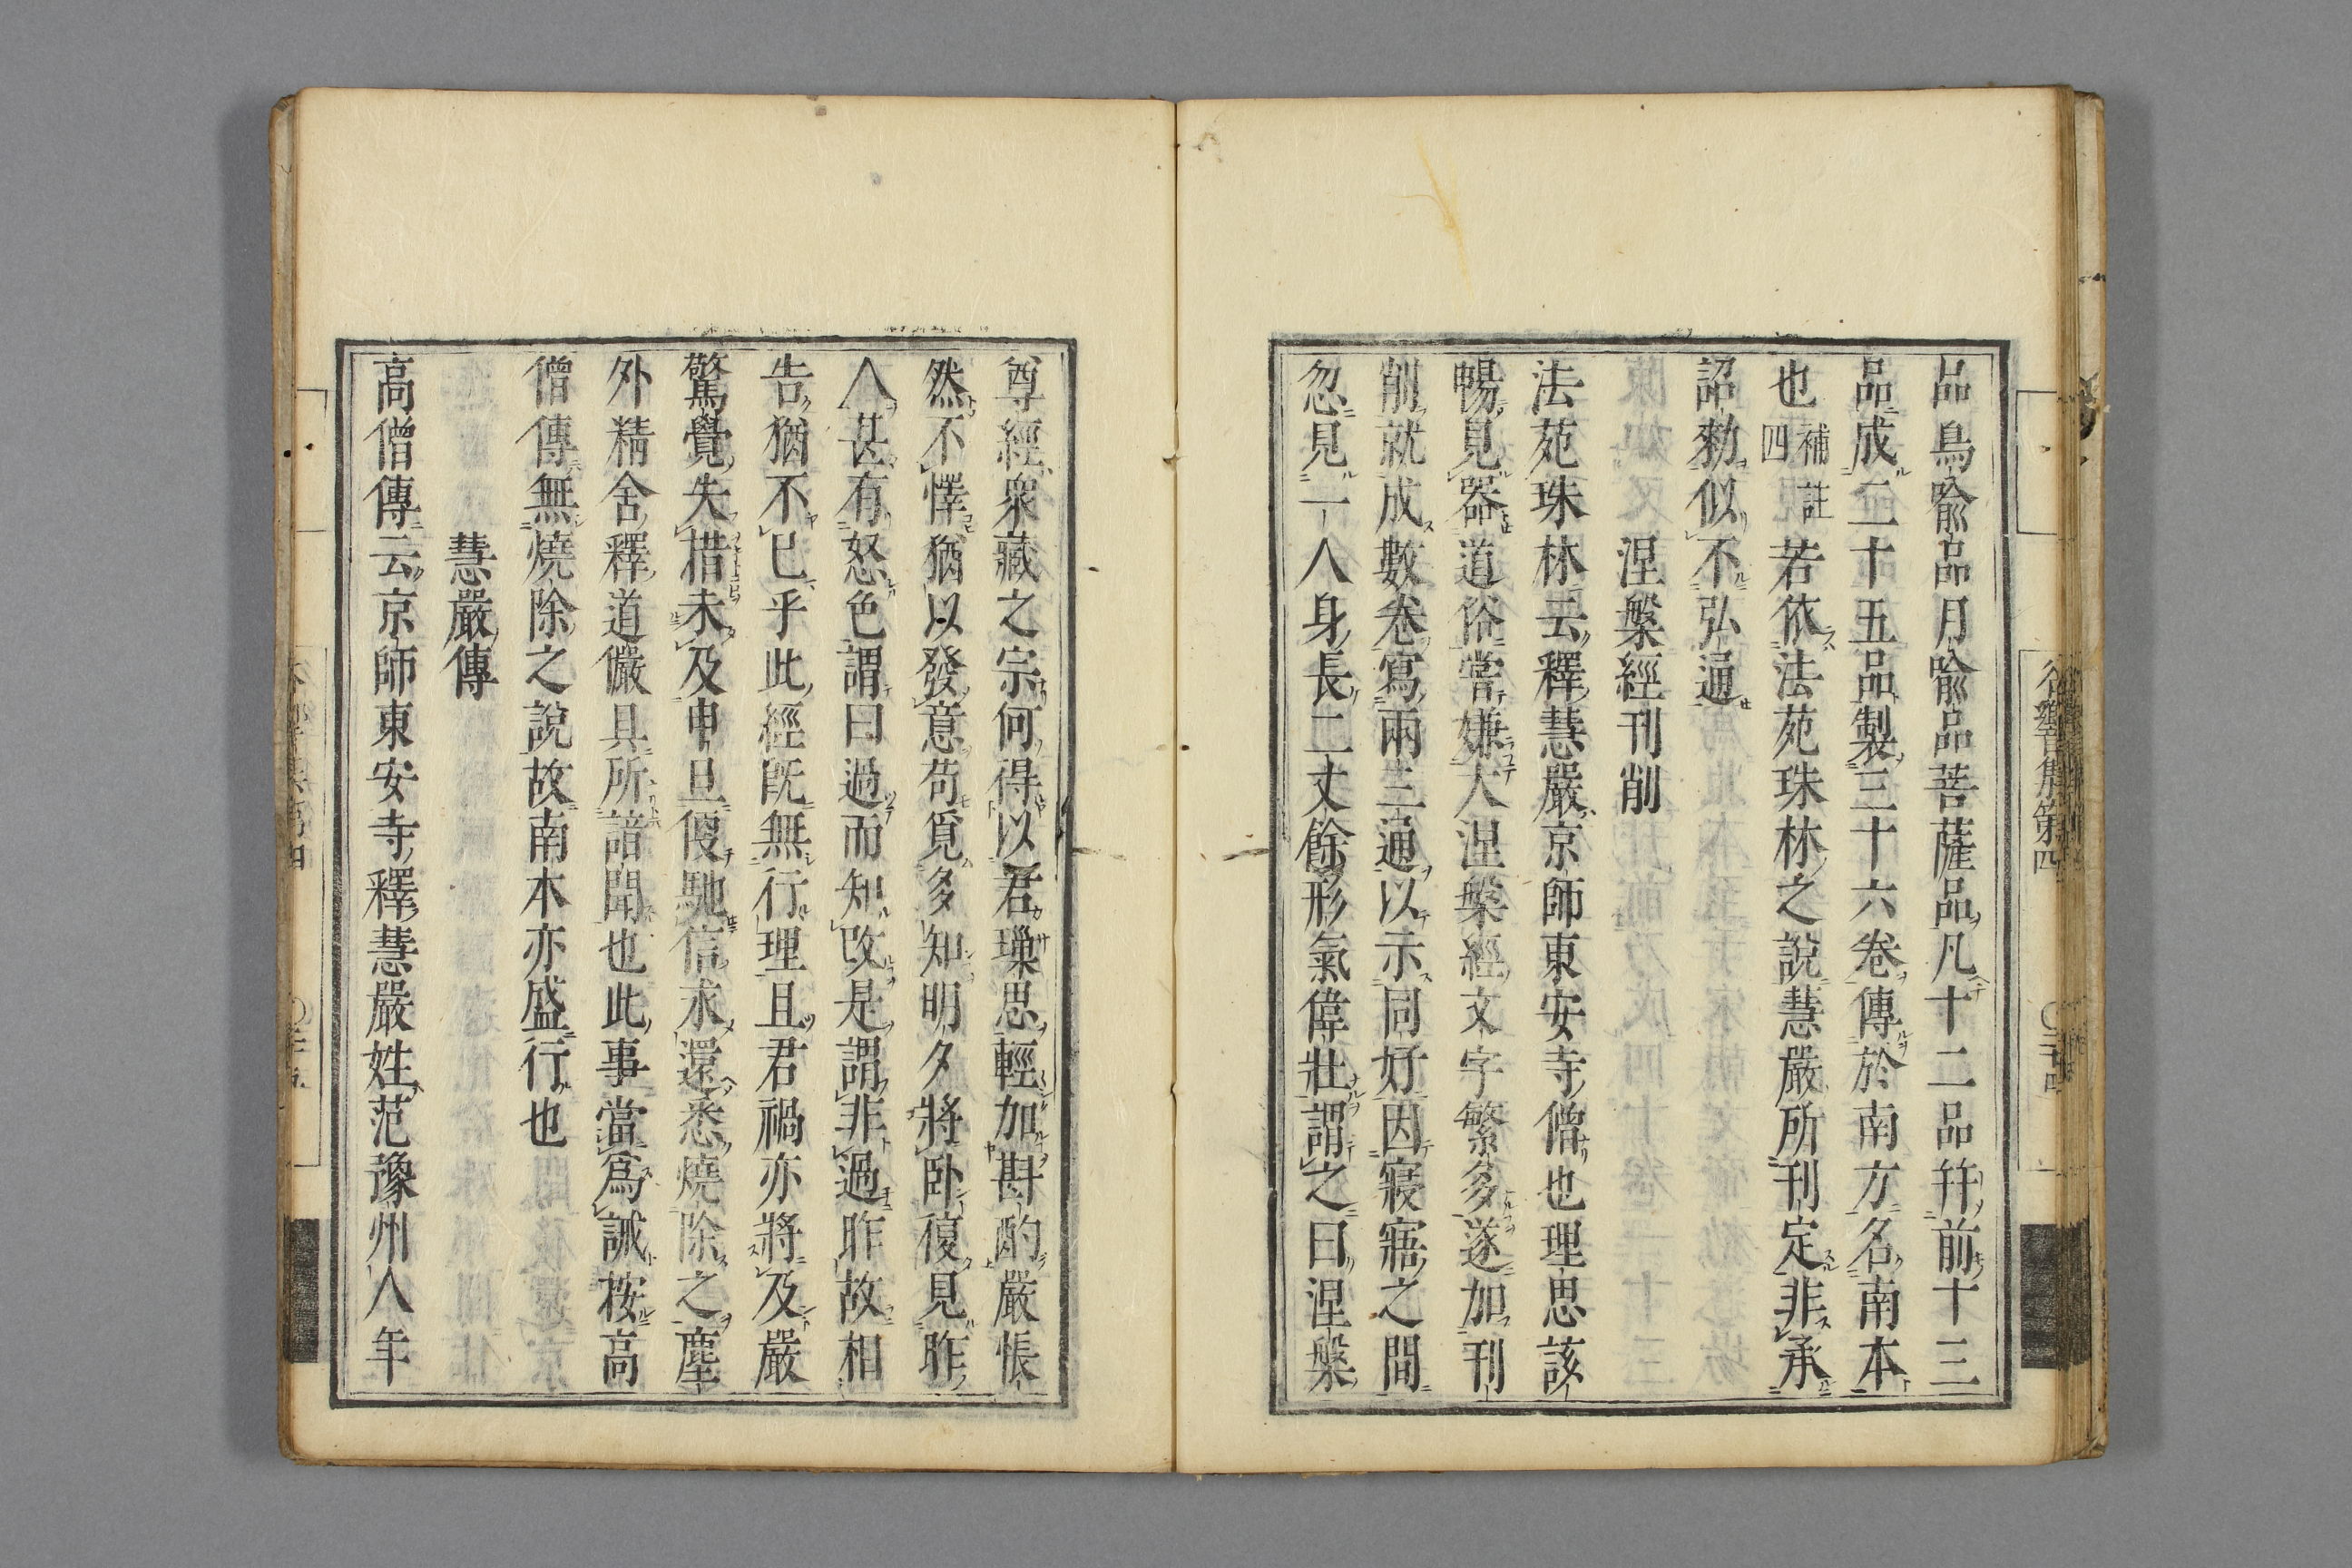 品鳥喩品月喩品菩薩品凡十二品幷前十三
品成二十五品製三十六卷傳於南方名南本
也補註四若依法苑珠林之說慧嚴所刊定非承
詔勑似不弘通
涅槃經刊削
法苑珠林云釋慧嚴京師東安寺僧也理思該
暢見器道俗嘗嫌大涅槃經文字繁多遂加刊
削就成數卷寫兩三通以示同好因寢寤之間
忽見一人身長二丈餘形氣偉壯謂之曰涅槃
尊經衆藏之宗何得以君璅思輕加斟酌嚴悵
然不懌猶以發意苟覓多知明夕將臥復見昨
人甚有怒色謂曰過而知改是謂非過昨故相
告猶不已乎此經旣無行理且君禍亦將及嚴
驚覺失措未及申旦便馳信求還悉燒除之塵
外精舍釋道儼具所諳聞也此事當爲誡按高
僧傳無燒除之說故南本亦盛行也
慧嚴傳
高僧傳云京師東安寺釋慧嚴姓范豫州人年
谷響集第四